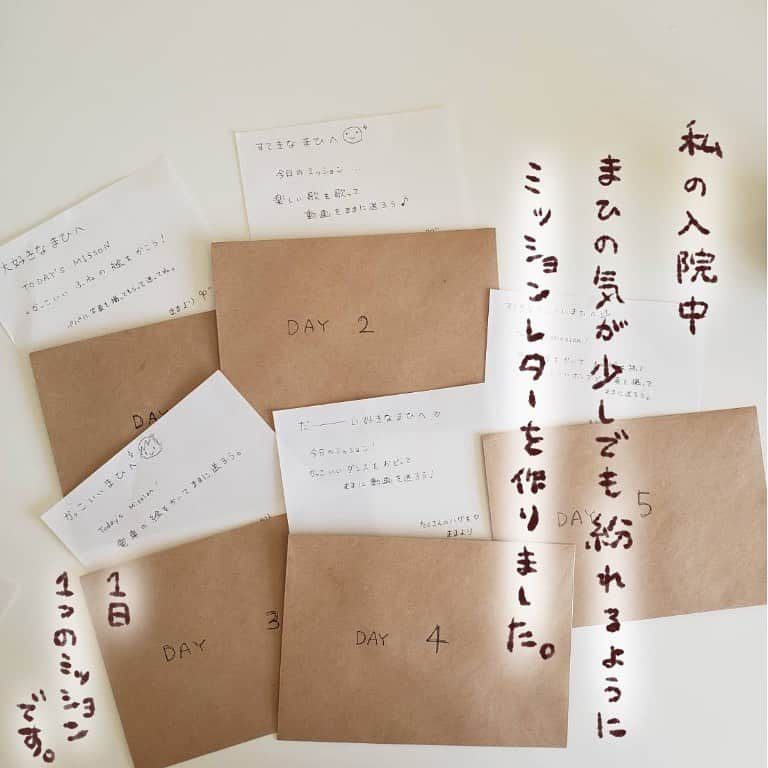 私の入院中
まひの気が少しでも紛れるように
ミッションレターを作りました。
1日
1つのミッション
です。
大好きなまひへ
TODAY'S MISSON
かっこいいふねの絵をかこう!
パパに写真を撮ってもらって送ってね。
ままより
DAY
すてきなまひへ
今日のミッション..
楽しい歌を歌って
動画をままに送ろう♪
DAY 2
かっこいいまひへ
Today's Mission!
電車の絵をかいてままに送ろう。
DAY 3
だーーい好きなまひへ♡
今日のミッション!
かっこいいダンスをおどって
ままに動画を送ろう♪
たくさんのハグを♡
ままより
DAY 4
ままに送ろう。
DAY 5